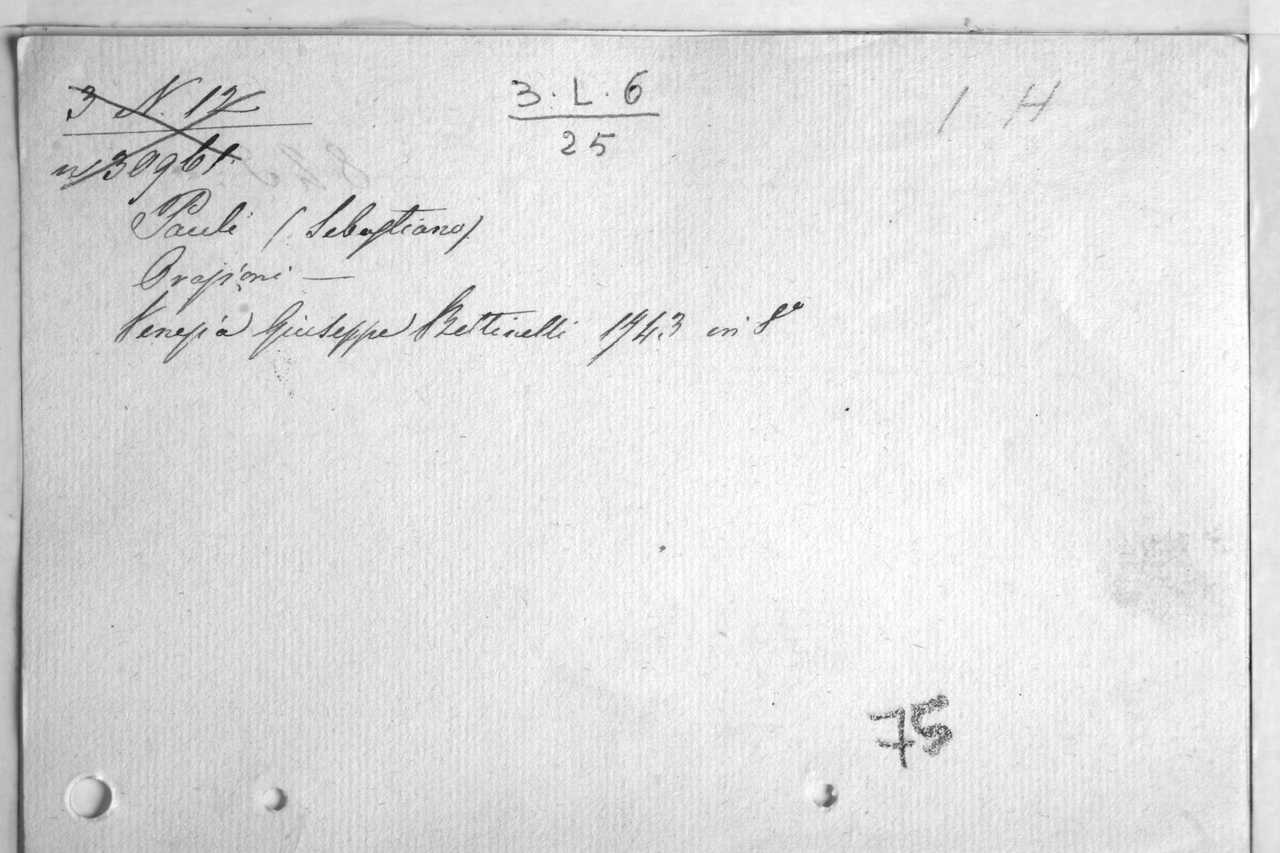 3 N. 12
3 . L . 6
25
1 H
n/30961
Pauli (Sebastiano)
Orazioni —
Venezia Giuseppe Bettinelli 1743 in 8°
75